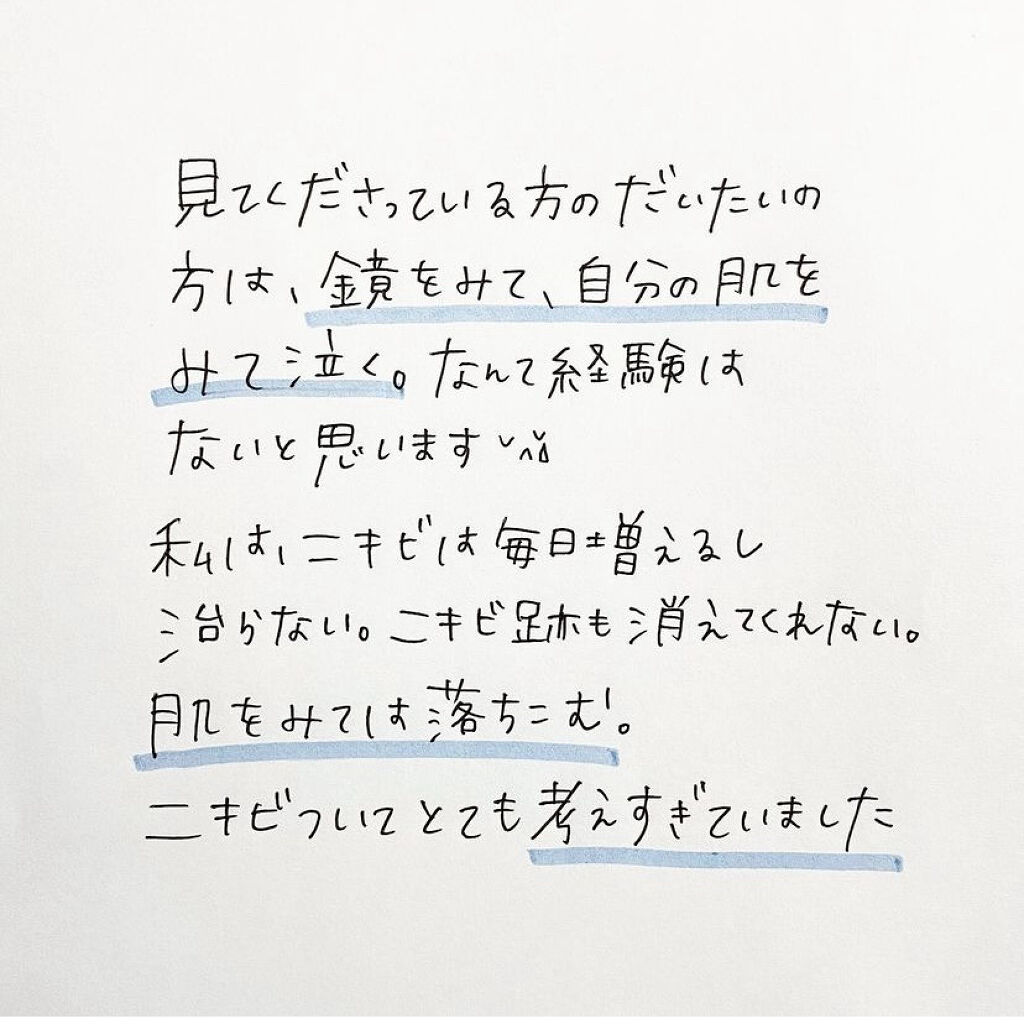 見てくださっている方のだいたいの
方は、鏡をみて、自分の肌を
みて泣く。なんて経験は
ないと思います
私は、ニキビは毎日増えるし
治らない。ニキビ跡も消えてくれない。
肌をみては落ちこむ。
ニキビついてとても考えすぎていました